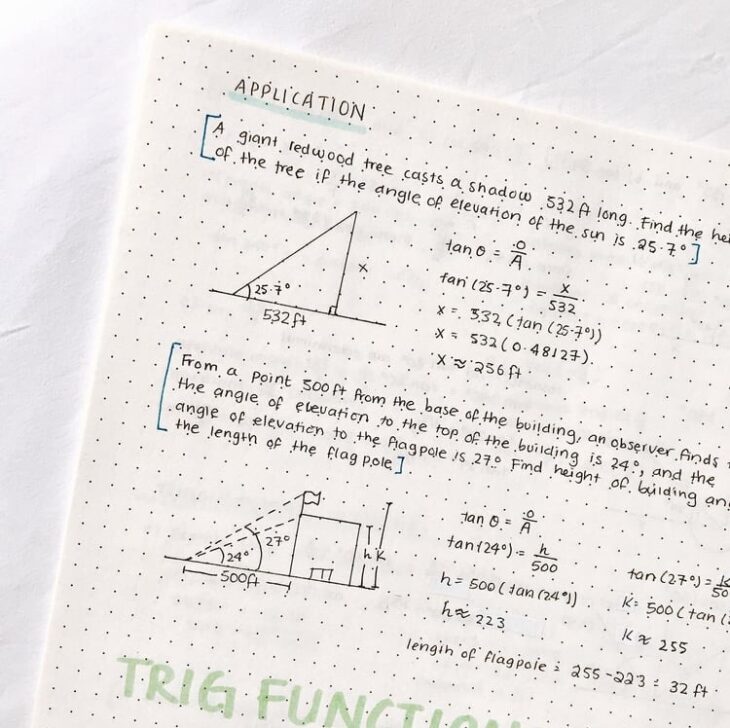 APPLICATION
[A giant redwood tree casts a shadow 532 ft long. Find the
of the tree if the angle of elevation of the sun is 25.7°]
25.7°
532 ft
x
tan θ = O/A
tan (25.7°) = x/532
x = 532 (tan (25.7°))
x = 532 (0.48127)
x ≈ 256 ft
[From a point 500 ft from the base of the building, an observer finds
the angle of elevation to the top of the building is 24°, and the
angle of elevation to the flagpole is 27° Find height of building
the length of the flagpole]
24°
27°
500 ft
h
k
tan θ = O/A
tan (24°) = h/500
h = 500 (tan (24°))
h ≈ 223
tan (27°) = k/
k = 500 (tan
k ≈ 255
length of flagpole = 255 - 223 = 32 ft
TRIG FUNCTION